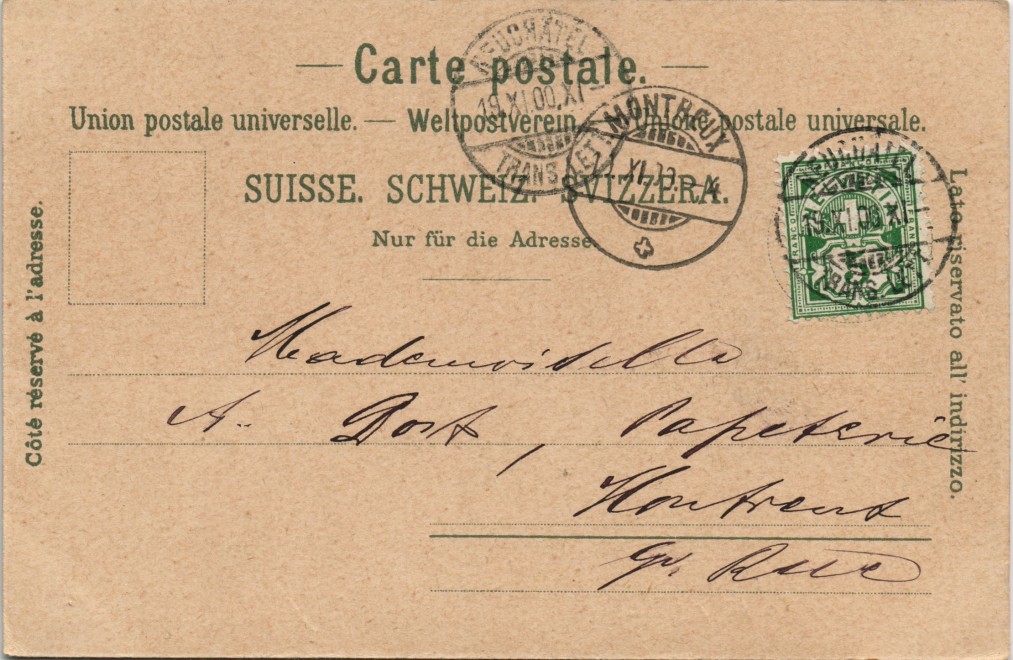 Carte postale.
Union postale universelle. — Weltpostverein. — Unione postale universale.
SUISSE. SCHWEIZ. SVIZZERA.
Nur für die Adresse.
Côté réservé à l'adresse.
Lato riservato all' indirizzo.
NEUCHÂTEL
19.XI.00.XI
TRANSIT
MONTREUX
XI.00. - 4
NEUCHÂTEL
19.XI.00.XI
TRANSIT
HELVETIA
FRANCO
FRANCO
5
Mademoiselle
A. Dost, Papeterie
Montreux
Gr. Rue